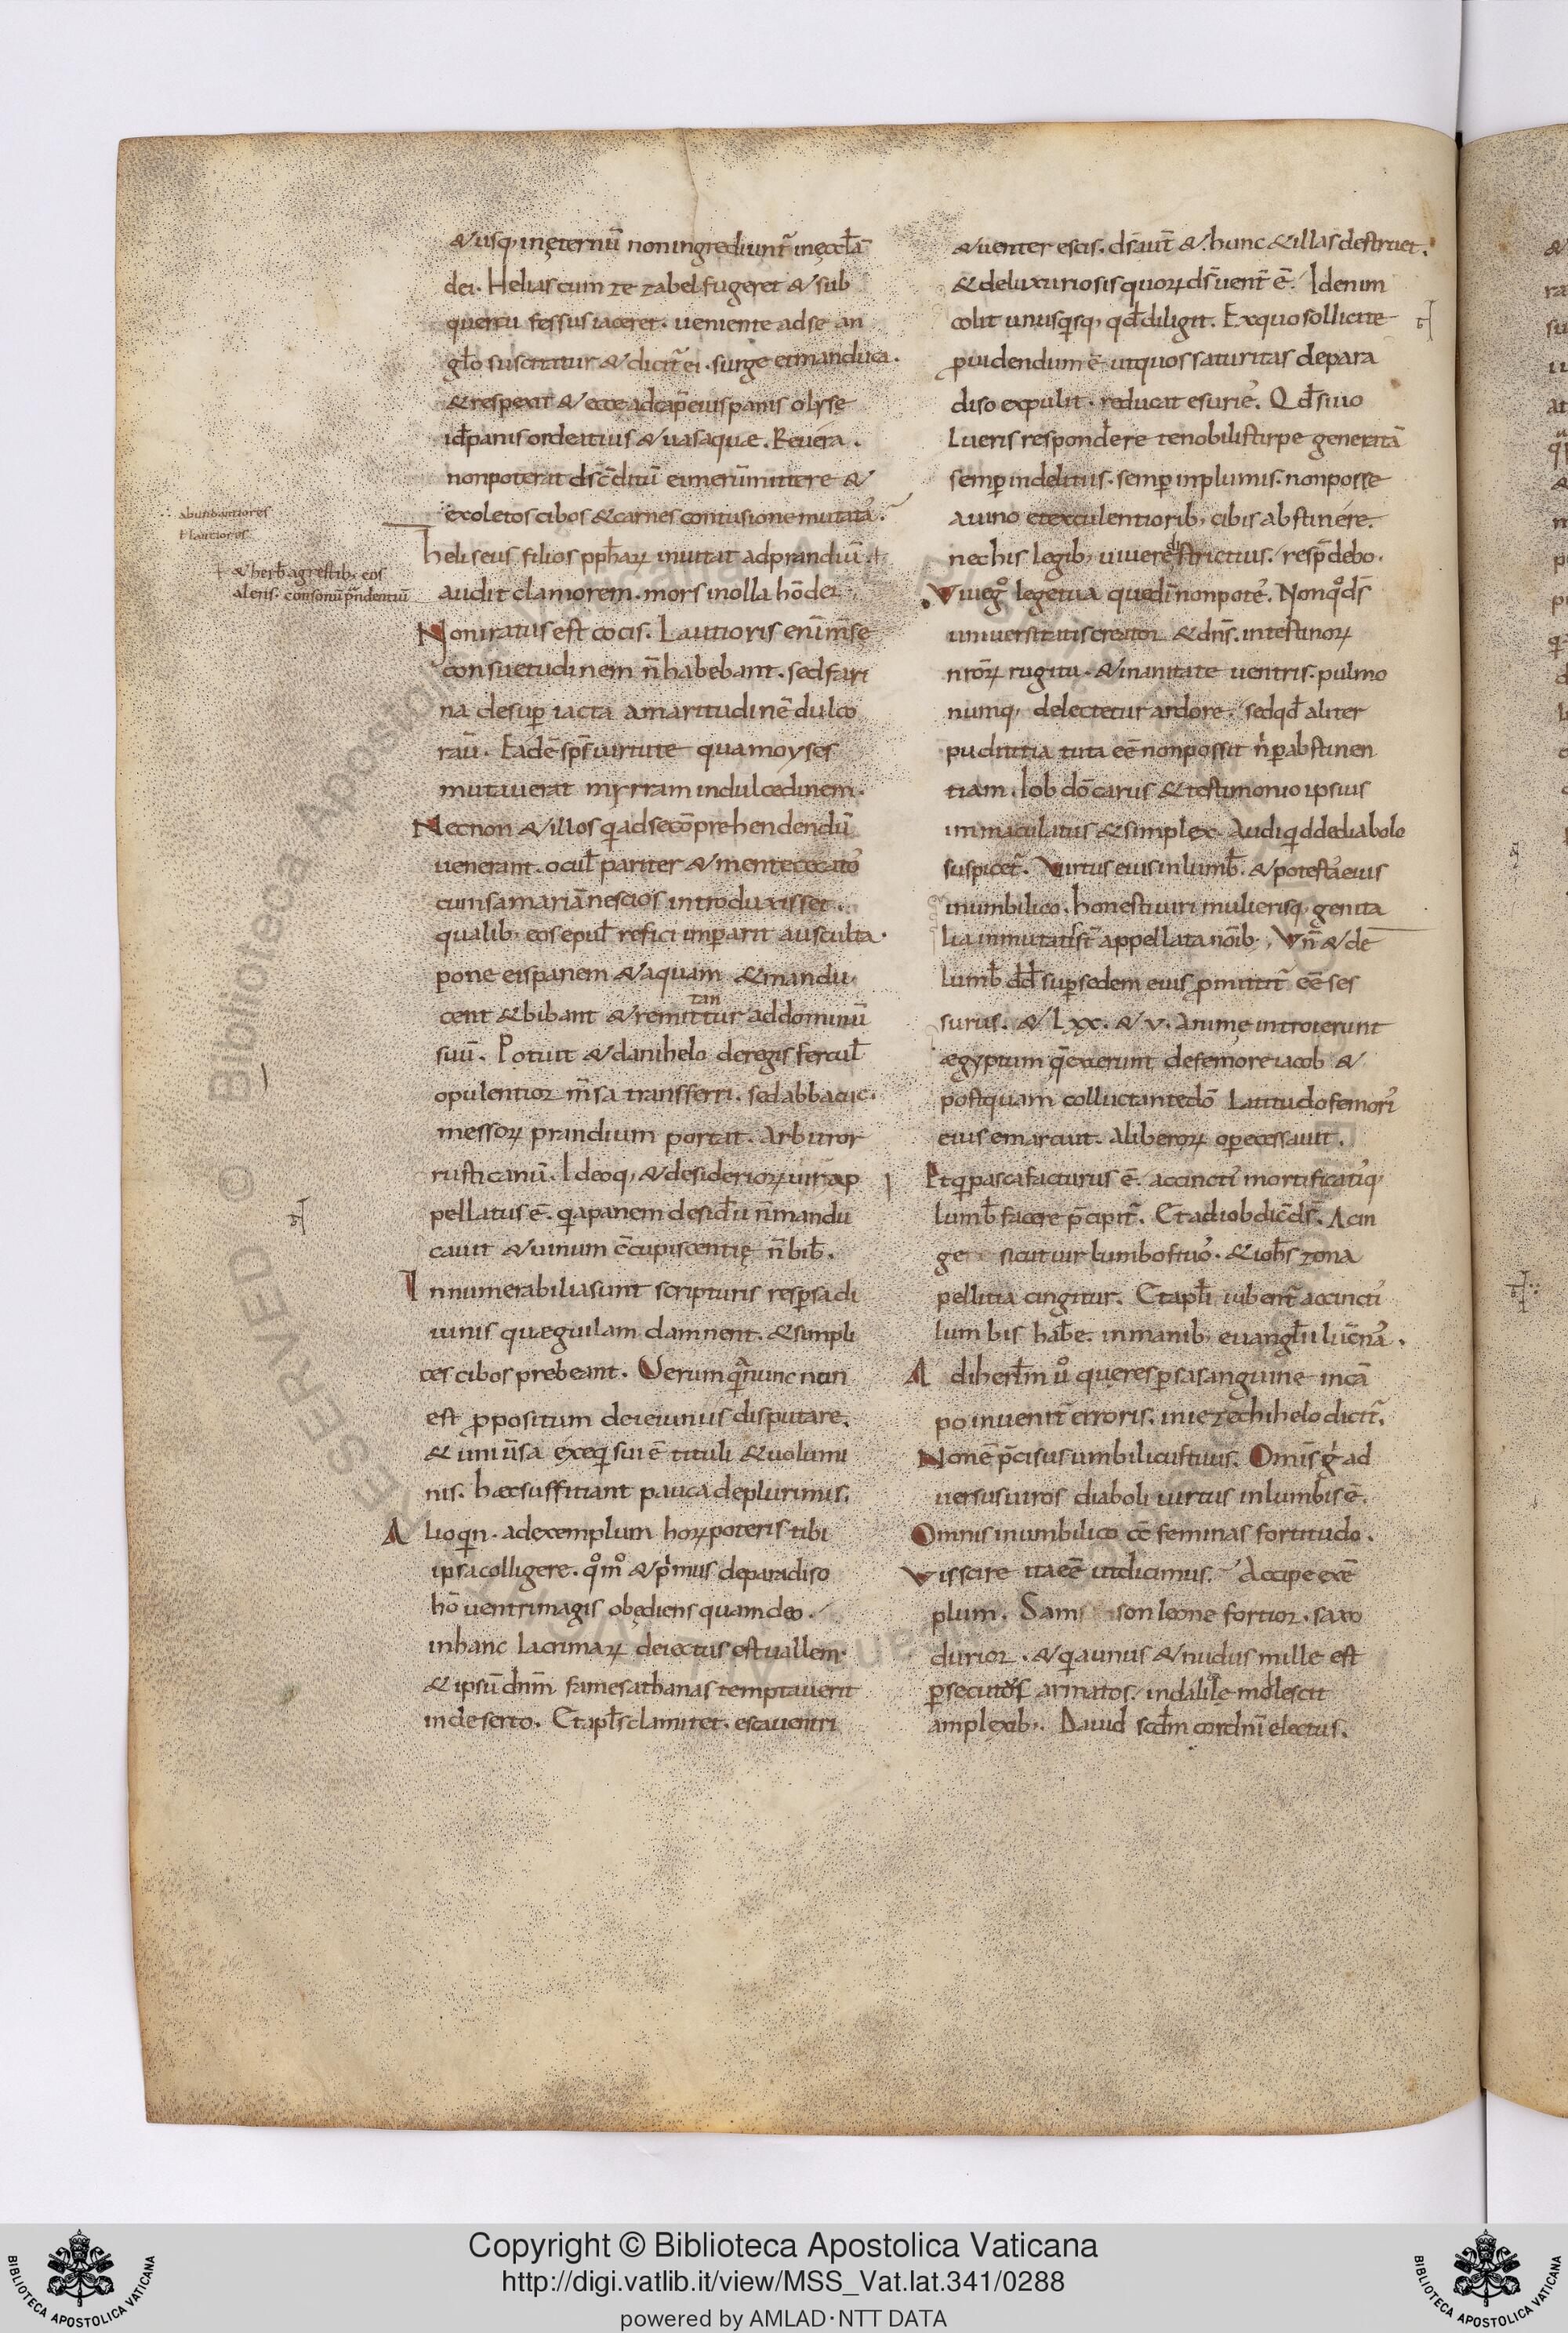 &usq; inęternū noningrediunt̄ inęccłā
dei. Helias cum ze zabel fugeret & sub
quercu fessus iaceret. ueniente adse an
gło suscitatur & dicit̄ ei. surge etmanduca.
& respexit & ecce adcap̄ eius panis olyre
id̄ panis ordeitius & uas aquæ. Reuera.
nonpoterat ds̄ c̄ditū eimerūmittere &
exoletos cibos & carnes contusione mutatas.
heliseus filios pph̄arꝝ inuitat adprandiū.+
audit clamorem. mors inolla hō dei
Noniratus est cocis. Lautioris enim m̄se
consuetudinem n̄ habebant. sed fari
na desuꝑ iacta amaritudinē dulco
rauit. Eadē sp̄s uirtute qua moyses
mutauerat myrram indulcedinem.
Necnon & illos qui adsecōprehendendū
uenerant. ocuł pariter & mente cęcatos
cum samariā nescios introduxisset.
qualib; eos epuł refici imꝑarit ausculta.
pone eis panem & aquam & mandu
cent & bibant & remittantur ad dominū
suū. Potuit & danihelo de regis fercuł
opulentior m̄sa transferri. sed abbacuc.
messorꝝ prandium portat. arbitror
rusticanū. Ideoq; & desideriorꝝ uir ap
pellatus ē. quia panem desid̄ii n̄ mandu
cauit & uinum c̄cupiscentię n̄ bib̄.
Innumerabilia sunt scripturis resꝑsa di
uinis quæ gulam damnent. & simpli
ces cibos prebeant. Verum quia nunc non
est ꝓpositum de ieiuniis disputare.
& uniūsa exequi sui ē tituli & uolumi
nis. hæc suffitiant pauca de plurimis.
Alioquin. ad exemplum horꝝ poteris tibi
ipsa colligere. quomodo & primus de paradiso
hō uentri magis obędiens quam deo.
in hanc lacrimarꝝ deiectus est uallem.
& ipsū dn̄m fame sathanas temptauerit
in deserto. Et apłs clamitet. esca uentri
& uenter escis. ds̄ aut̄ & hunc & illas destruet.
& de luxuriosis quorꝝ ds̄ uent̄ ē. Id enim
colit unusquisq; qd̄ diligit. Ex quo sollicite
ꝓuidendum ē. ut quos saturitas de para
diso expulit. reducat esuries. Qd̄ si uo
lueris respondere te nobili stirpe generatā
semꝑ in delitiis. semꝑ in plumis. non posse
a uino et exculentiorib; cibis abstinere.
nec his legib; uiuere districtius. resp̄debo.
Viue g̊ lege tua quę di n̄ non potes. Non quod ds̄
uniuersitatis creator & dn̄s. intestinorꝝ
nr̄orꝝ rugitu. & inanitate uentris. pulmo
numq; delectetur ardore. sed qd̄ aliter
pudititia tuta eē non possit n̄ ꝑ abstinen
tiam. Iob dō carus & testimonio ipsius
immaculatus & simplex. Audi quid de diabolo
suspicet̄. Virtus eius in lumb̄. & potestas eius
in umbilico. honeste uiri mulierisq; genita
lia inmutatis st̄ appellata nōib; Vn̄ & de
lumb̄ dd̄ suꝑ sedem eius ꝓmittit̄ eē ses
surus. & lxx. & v. animę introierunt
ægyptum quę exierunt de femore iacob &
postquam colluctante dō Latitudo femoris
eius emarcuit. a liberorꝝ oꝑe cessauit.
Et qui pasca facturus ē. accinctis mortificatisq;
lumb̄ facere p̄cipit̄. Et ad iob dic̄ ds̄. Acin
ge sicut uir lumbos tuos. & iohs̄ zona
pellitia cingitur. Et apłi iubent̄ accinctis
lumbis hab̄e. in manib; euangłii lūc̄nas.
Ad ihertm̄ uº quę resꝑsa sanguine in cā
po inuenit̄ erroris. in iezechihelo dicit̄.
Non ē p̄cisus umbilicus tuus. Omis̄ g̊ ad
uersus uiros diaboli uirtus in lumbis ē.
Omnis in umbilico c̄ feminas fortitudo.
Vis scire ita eē ut dicimus. Accipe exē
plum. Samson leone fortior. saxo
durior. & qui unus & nudus mille est
ꝑsecutos armatos. in dalile mollescit
amplexib;. Dauid scd̄m cor dn̄i electus.
abundantiores
t lautiores
+ & herb̄ agrestib; eos
alens. consonū p̄ndentiū
Copyright © Biblioteca Apostolica Vaticana
http://digi.vatlib.it/view/MSS_Vat.lat.341/0288
powered by AMLAD·NTT DATA